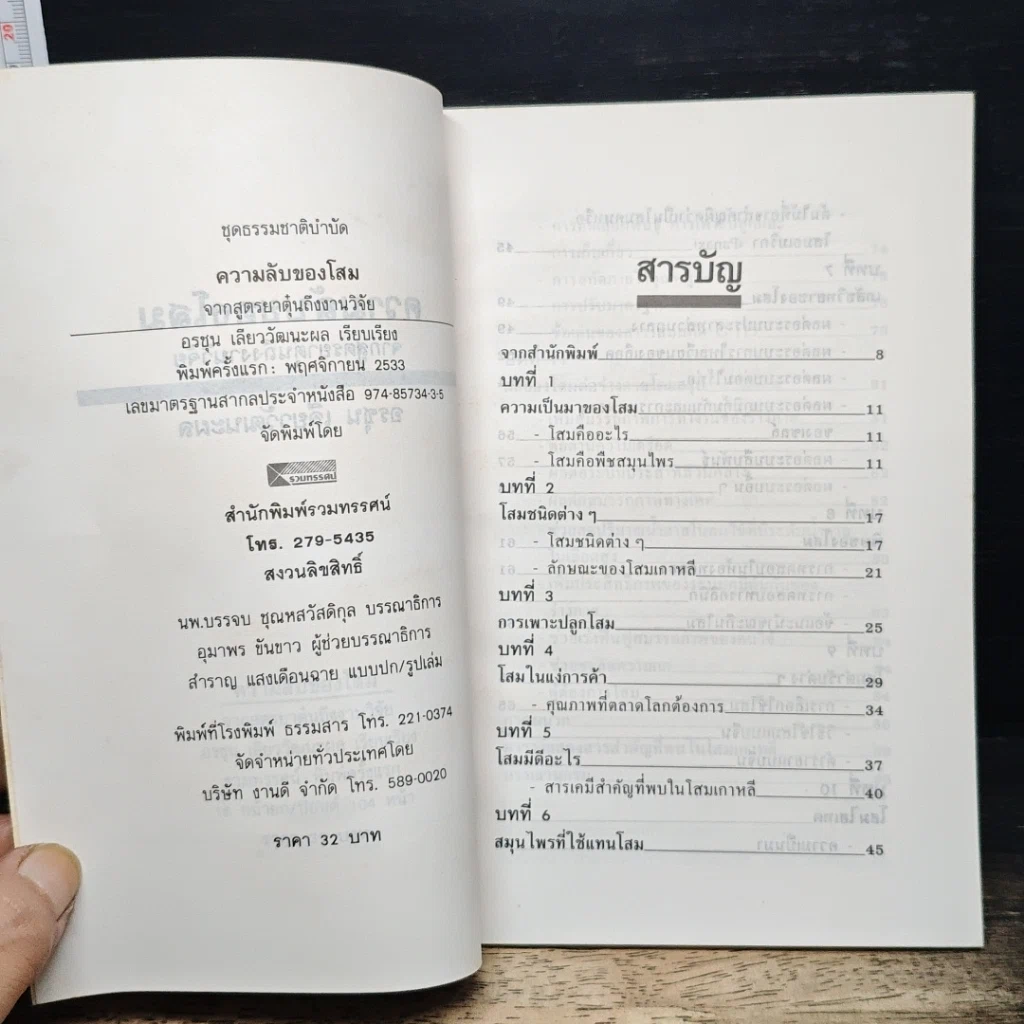 20
ชุดธรรมชาติบำบัด
ความลับของโสม
จากสูตรยาตุ๋นถึงงานวิจัย
อรชุน เลียววัฒนะผล เรียบเรียง
พิมพ์ครั้งแรก: พฤศจิกายน 2533
เลขมาตรฐานสากลประจำหนังสือ 974-85734-3-5
จัดพิมพ์โดย
รวมทรรศน์
สำนักพิมพ์รวมทรรศน์
โทร. 279-5435
สงวนลิขสิทธิ์
นพ.บรรจบ ชุณหสวัสดิกุล บรรณาธิการ
อุมาพร ขันขาว ผู้ช่วยบรรณาธิการ
สำราญ แสงเดือนฉาย แบบปก/รูปเล่ม
พิมพ์ที่โรงพิมพ์ ธรรมสาร โทร. 221-0374
จัดจำหน่ายทั่วประเทศโดย
บริษัท งานดี จำกัด โทร. 589-0020
ราคา 32 บาท
สารบัญ
จากสำนักพิมพ์ 8
บทที่ 1
ความเป็นมาของโสม 11
- โสมคืออะไร 11
- โสมคือพืชสมุนไพร 11
บทที่ 2
โสมชนิดต่าง ๆ 17
- โสมชนิดต่าง ๆ 17
- ลักษณะของโสมเกาหลี 21
บทที่ 3
การเพาะปลูกโสม 25
บทที่ 4
โสมในแง่การค้า 29
- คุณภาพที่ตลาดโลกต้องการ 34
บทที่ 5
โสมมีดีอะไร 37
- สารเคมีสำคัญที่พบในโสมเกาหลี 40
บทที่ 6
สมุนไพรที่ใช้แทนโสม 45